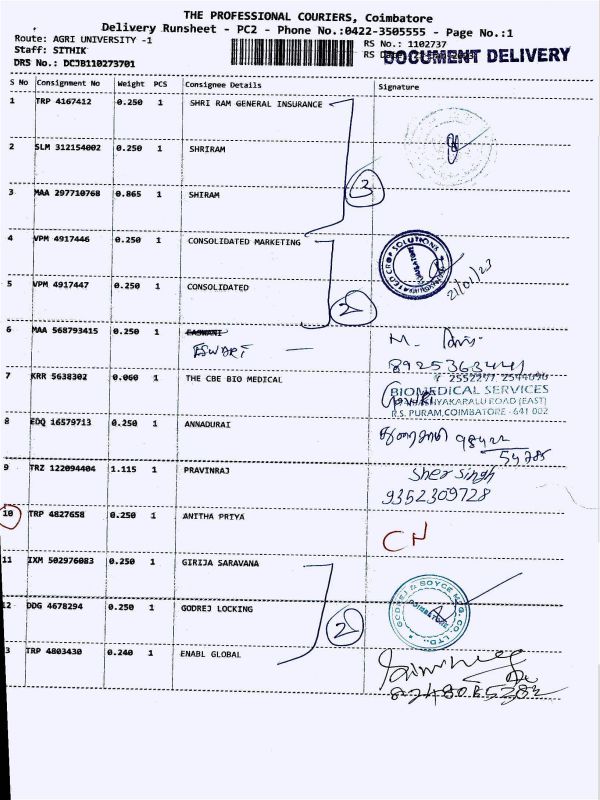 THE PROFESSIONAL COURIERS, Coimbatore
Delivery Runsheet - PC2 - Phone No.:0422-3505555 - Page No.:1
Route: AGRI UNIVERSITY -1
RS No.: 1102737
Staff: SITHIK
RS
DOCUMENT DELIVERY
DRS No.: DCJB110273701
S No Consignment No Weight PCS Consignee Details Signature
1 TRP 4167412 0.250 1 SHRI RAM GENERAL INSURANCE
2 SLM 312154002 0.250 1 SHRIRAM
3 MAA 297710768 0.865 1 SHIRAM
3
4 VPM 4917446 0.250 1 CONSOLIDATED MARKETING
CROP SOLUTIONS
5 VPM 4917447 0.250 1 CONSOLIDATED
21/01/23
2
6 MAA 568793415 0.250 1 EASWANI
ESWARI —
M.
8925363441
7 KRR 5638302 0.060 1 THE CBE BIO MEDICAL
2552277, 2544096
BIOMEDICAL SERVICES
ROAD (EAST)
R.S. PURAM, COIMBATORE - 641 002
8 EDQ 16579713 0.250 1 ANNADURAI
98422
54785
9 TRZ 122094404 1.115 1 PRAVINRAJ
Sher Singh
9352309728
10 TRP 4827658 0.250 1 ANITHA PRIYA
CN
11 IXM 502976083 0.250 1 GIRIJA SARAVANA
12 DDG 4678294 0.250 1 GODREJ LOCKING
2
GODREJ & BOYCE MFG. CO. LTD.
COIMBATORE
3 TRP 4803430 0.240 1 ENABL GLOBAL